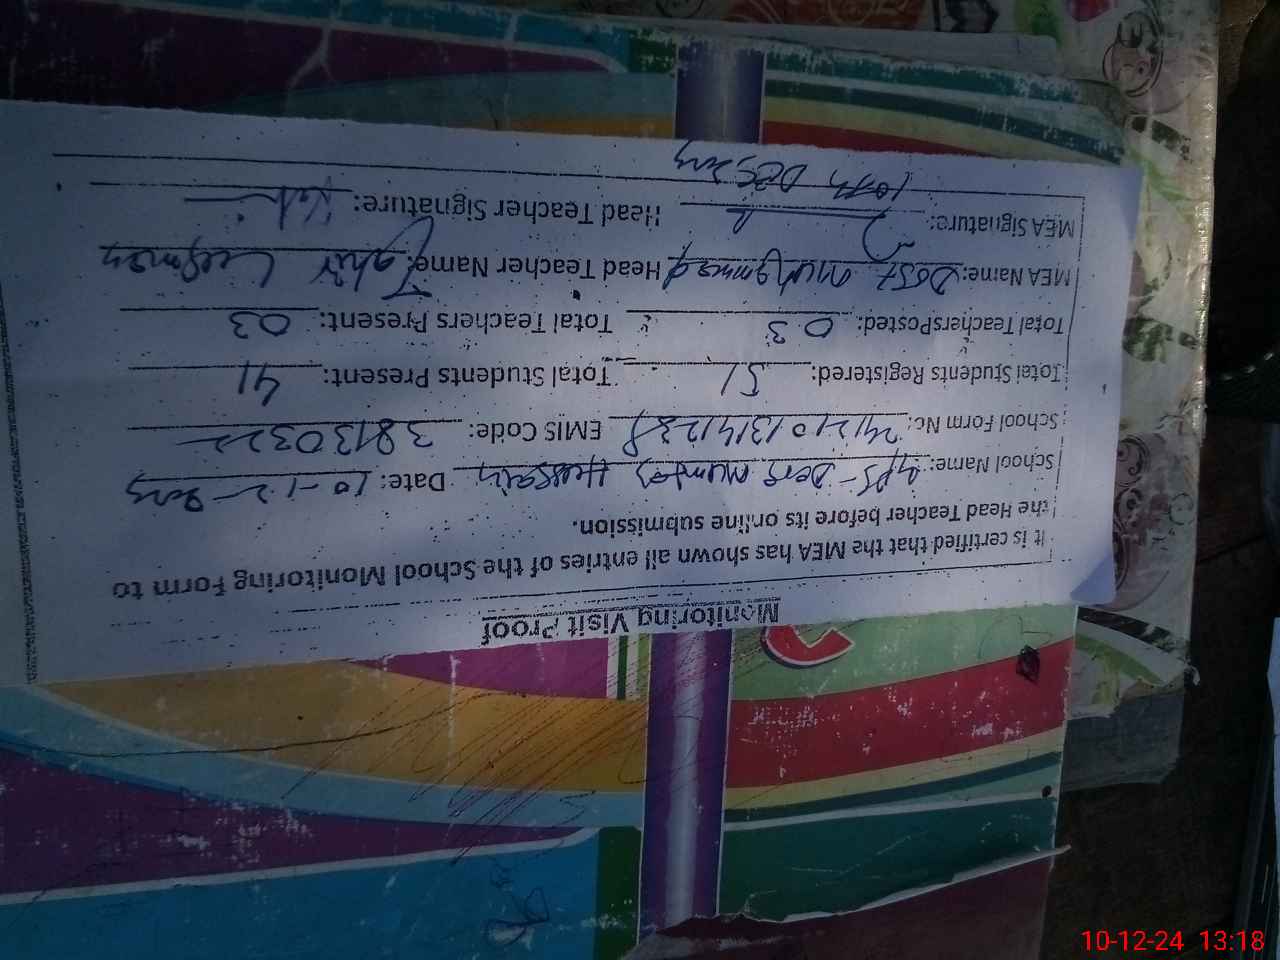 Monitoring Visit Proof
It is certified that the MEA has shown all entries of the School Monitoring Form to
the Head Teacher before its online submission.
School Name: GPS - Dero Mumtaz Hussain Date: 10-12-2024
School Form No: EMIS Code: 38130322
Total Students Registered: 51 Total Students Present: 41
Total TeachersPosted: 03 Total Teachers Present: 03
MEA Name: Dost Muhammad Head Teacher Name: Tahir
MEA Signature: Head Teacher Signature:
10th DEC, 2024
10-12-24 13:18